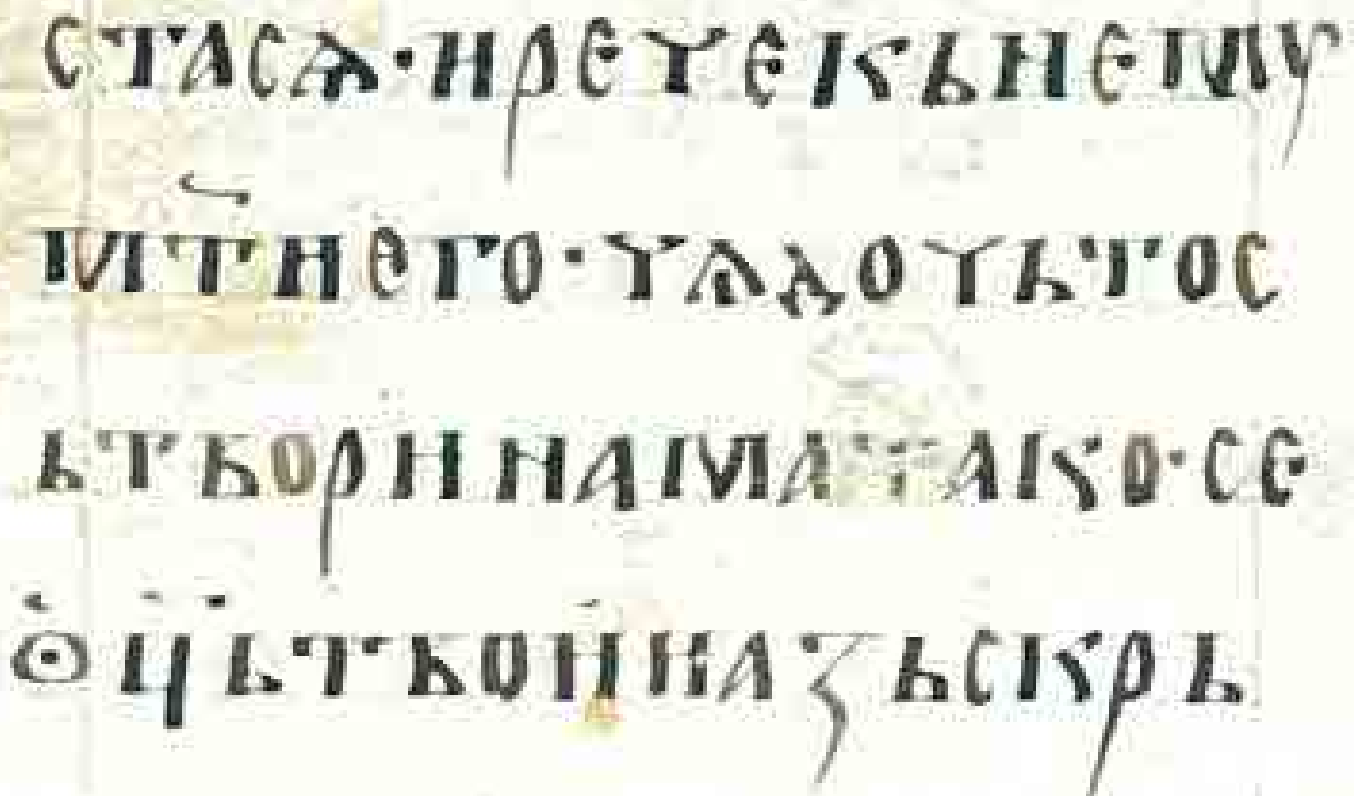 стасѧ·иречекьнемꙋ
мт҃иего·чѧдочьтос
ьтворинаматако·се
ꙩц҃ьтвоииазьскрь